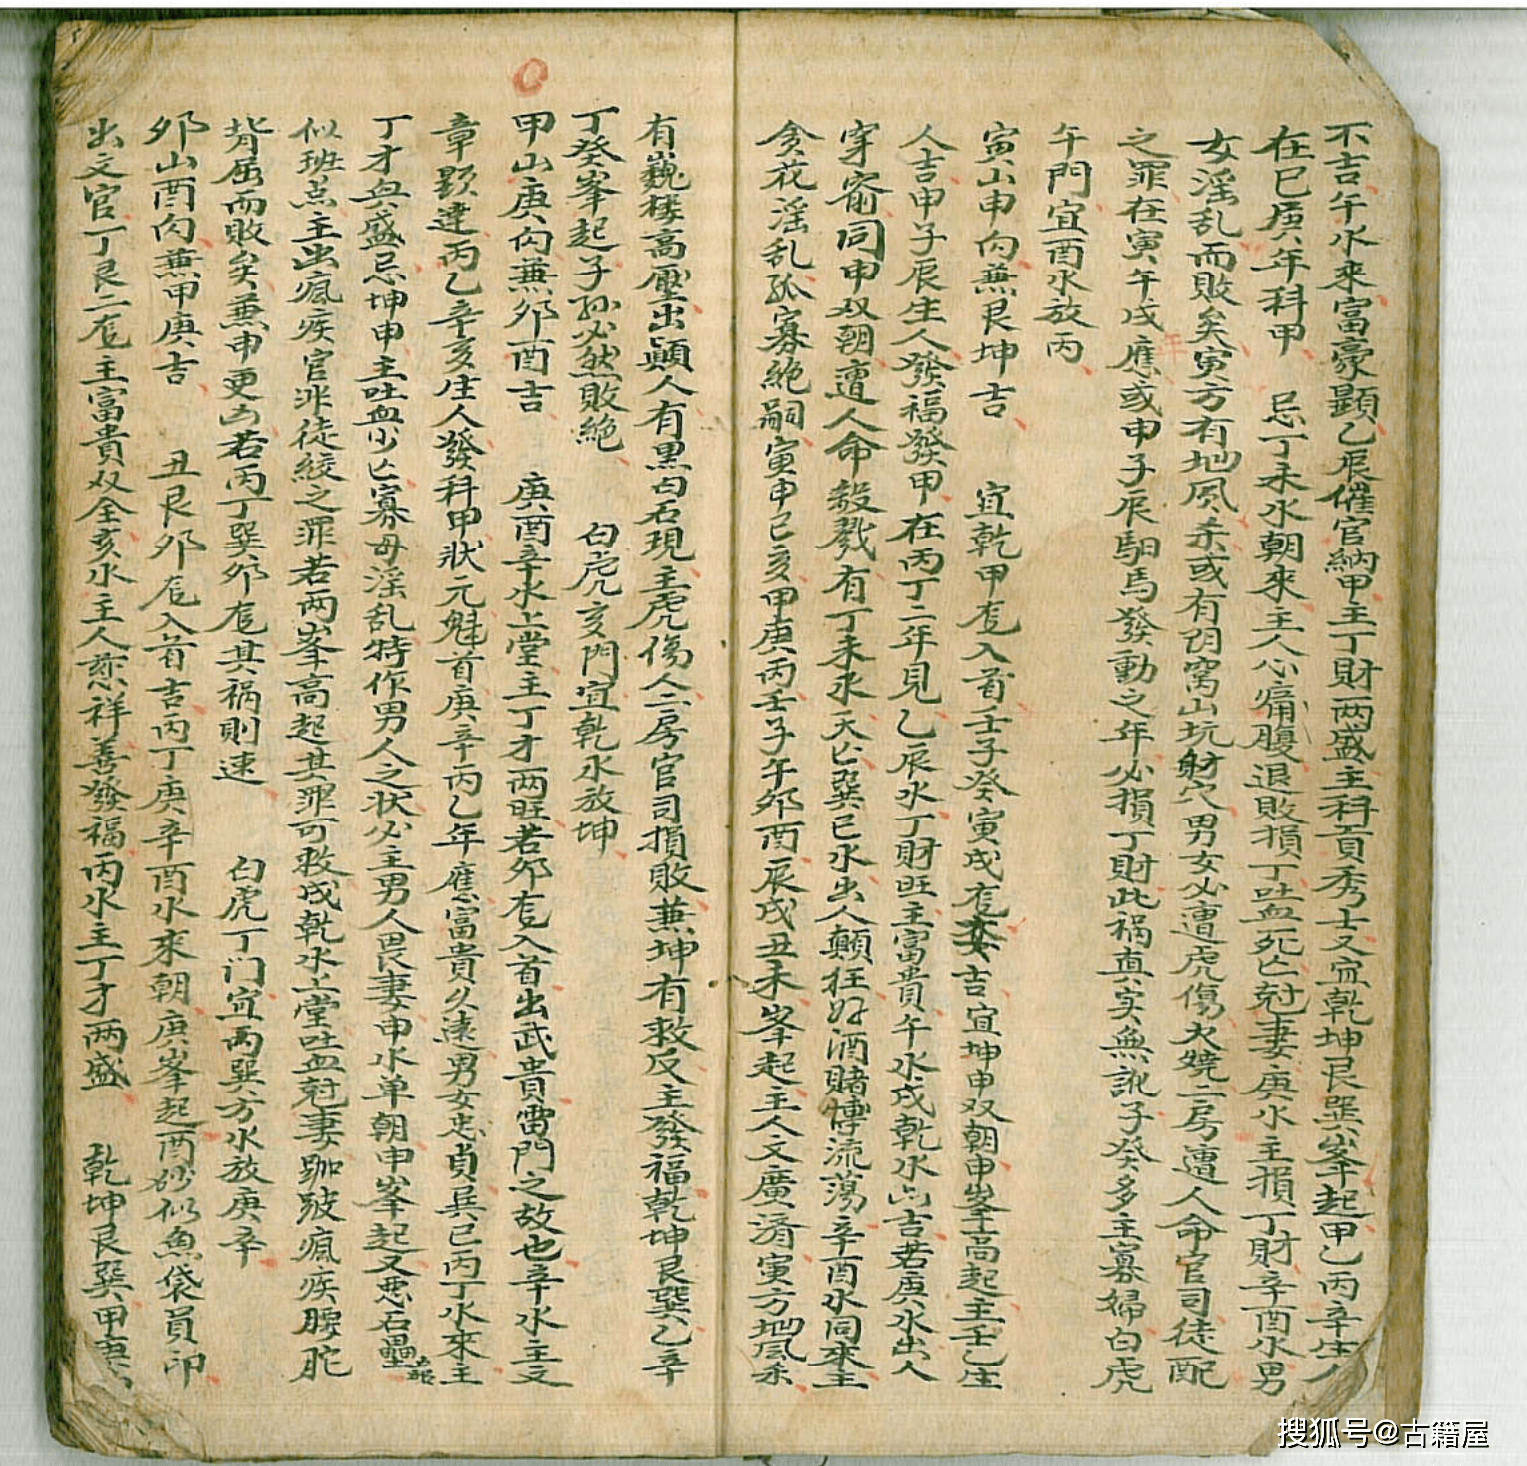 不吉午水來富豪顯乙辰催官納甲主丁財兩盛主科貢秀士又宜乾坤艮巽峯起甲乙丙辛生人
在巳庚年科甲 忌丁未水朝來主人心痛腹退敗損丁吐血死亡尅妻庚水主損丁財辛酉水男
女淫乱而敗矣寅方有地風杀或有明窩山坑射穴男女必遭虎傷火燒二房遭人命官司徒配
之罪在寅午戌年應或申子辰馹馬發動之年必損丁財此禍真实無訛子癸多主寡婦白虎
午門宜酉水放丙
寅山申向兼艮坤吉 宜乾甲龙入首壬子癸寅戌龙吉宜坤申双朝申峯高起主壬乙生
人吉申子辰生人發福發甲在丙丁二年見乙辰水丁財旺主富貴午水戌乾水吉若庚水出人
穿窬同申双朝遭人命殺戮有丁未水夭亡巽巳水出人顛狂好酒賭博流蕩辛酉水同來主
貪花淫乱孤寡絶嗣寅申巳亥甲庚丙壬子午夘酉辰戌丑未峯起主人文廣濟寅方地風杀
有巍楼高壓出顛人有黑白石現主虎傷人二房官司損敗兼坤有救反主發福乾坤艮巽乙辛
丁癸峯起子孙必然敗絶 白虎亥門宜乾水放坤
甲山庚向兼夘酉吉 庚酉辛水上堂主丁才两旺若夘龙入首出武貴雷門之故也辛水主文
章顯達丙乙辛亥生人發科甲狀元魁首庚辛丙乙年應富貴久遠男女忠貞兵巳丙丁水來主
丁才興盛忌坤申主吐血少亡寡母淫乱特作男人之状必主男人畏妻申水单朝申峯起又悪石壘
似班点主出瘋疾官非徒絞之罪若两峯高起其罪可救戌乾水上堂吐血尅妻跏跛瘋疾腰駝
背屈而敗矣兼申更凶若丙丁巽夘龙其禍則速 白虎丁门宜两巽方水放庚辛
夘山酉向兼甲庚吉 丑艮夘龙入首吉丙丁庚辛酉水來朝庚峯起酉砂似魚袋員印
出文官丁艮二龙主富貴双全亥水主人慈祥善發福丙水主丁才两盛 乾坤艮巽甲庚
搜狐号@古籍屋